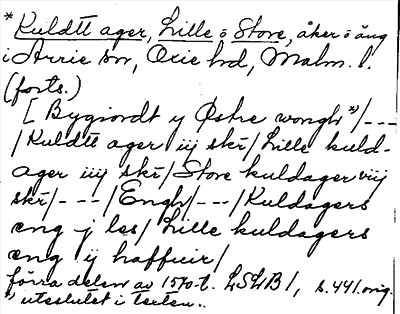 * Kuldtt ager, Lille o Store, åker o äng
i Arrie sn, Oxie hd, Malm. l.
(forts.)
[ Bygiordt y Østre wongh *)/---
/Kuldtt ager iij skr/Lille kuld-
ager iiij skr/Store kuldager viij
skr/---/Engh/---/Kuldagers
eng j les/Lille kuldagers
eng ij haffuir/
förra delen av 1570-t. LSLB 1, s. 441. orig.
*) uteslutet i texten.